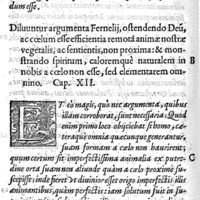 dum esse.
Diluuntur argumenta Fernelij, ostendendo Deũ,
ac cœlum esse efficientia remota animæ nostræ
vegetalis, ac sentientis, non proxima: & mon-
strando spiritum, caloremquè naturalem in B
nobis à cœlo non esse, sed elementarem om-
nino. Cap. XII.
T eò magis, quò nec argumenta, quibus
illam corroborat, sunt necessaria: Quod
enim primo loco obijciebat, homo, cæ-
teraquè animalia quæcunque generantur,
suam formam à cœlo non haurirent:
quum certum sit imperfectissima animalia ex putre-
dine orta suam non aliunde quàm à cœlo proximè su-
scepisse: inde fieret vt diuiniori esset origo imperfectis: illæ
animantibus, quàm perfectis: iam solutum fuit in su-